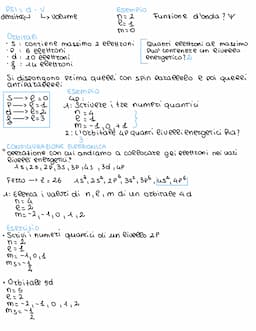 Esempio
n=2 Funzione d'onda? Ψ
densità → volume l=1
m=0
Orbitali
- S: contiene massimo 2 elettroni
- P: 6 elettroni
- d: 10 elettroni
- f: 14 elettroni
Quanti elettroni al massimo
Può contenere un livello
energetico? 2
Si dispongono prima quelli con spin parallelo e poi quelli
antiparalleli
S → l=0
P → l=1
d → l=2
f → l=3
Esempio
4p:
1: Scrivere i tre numeri quantici
n=4
l=1
m=-1, 0, +1
2: L'orbitale 4p quanti livelli energetici ha?
3
CONFIGURAZIONE ELETTRONICA
operazione con cui andiamo a collocare gli elettroni nei vari
livelli energetici
1s, 2s, 2p, 3s, 3p, 4s, 3d, 4p
1: Elenca i valori di n, l, m di un orbitale 4d
n=4
l=2
m=-2, -1, 0, 1, 2
Esercizio
- Scrivi i numeri quantici di un livello 2p
n=2
l=1
m=-1, 0, 1
- Orbitale 5d
n=5
l=2
m=-2, -1, 0, 1, 2